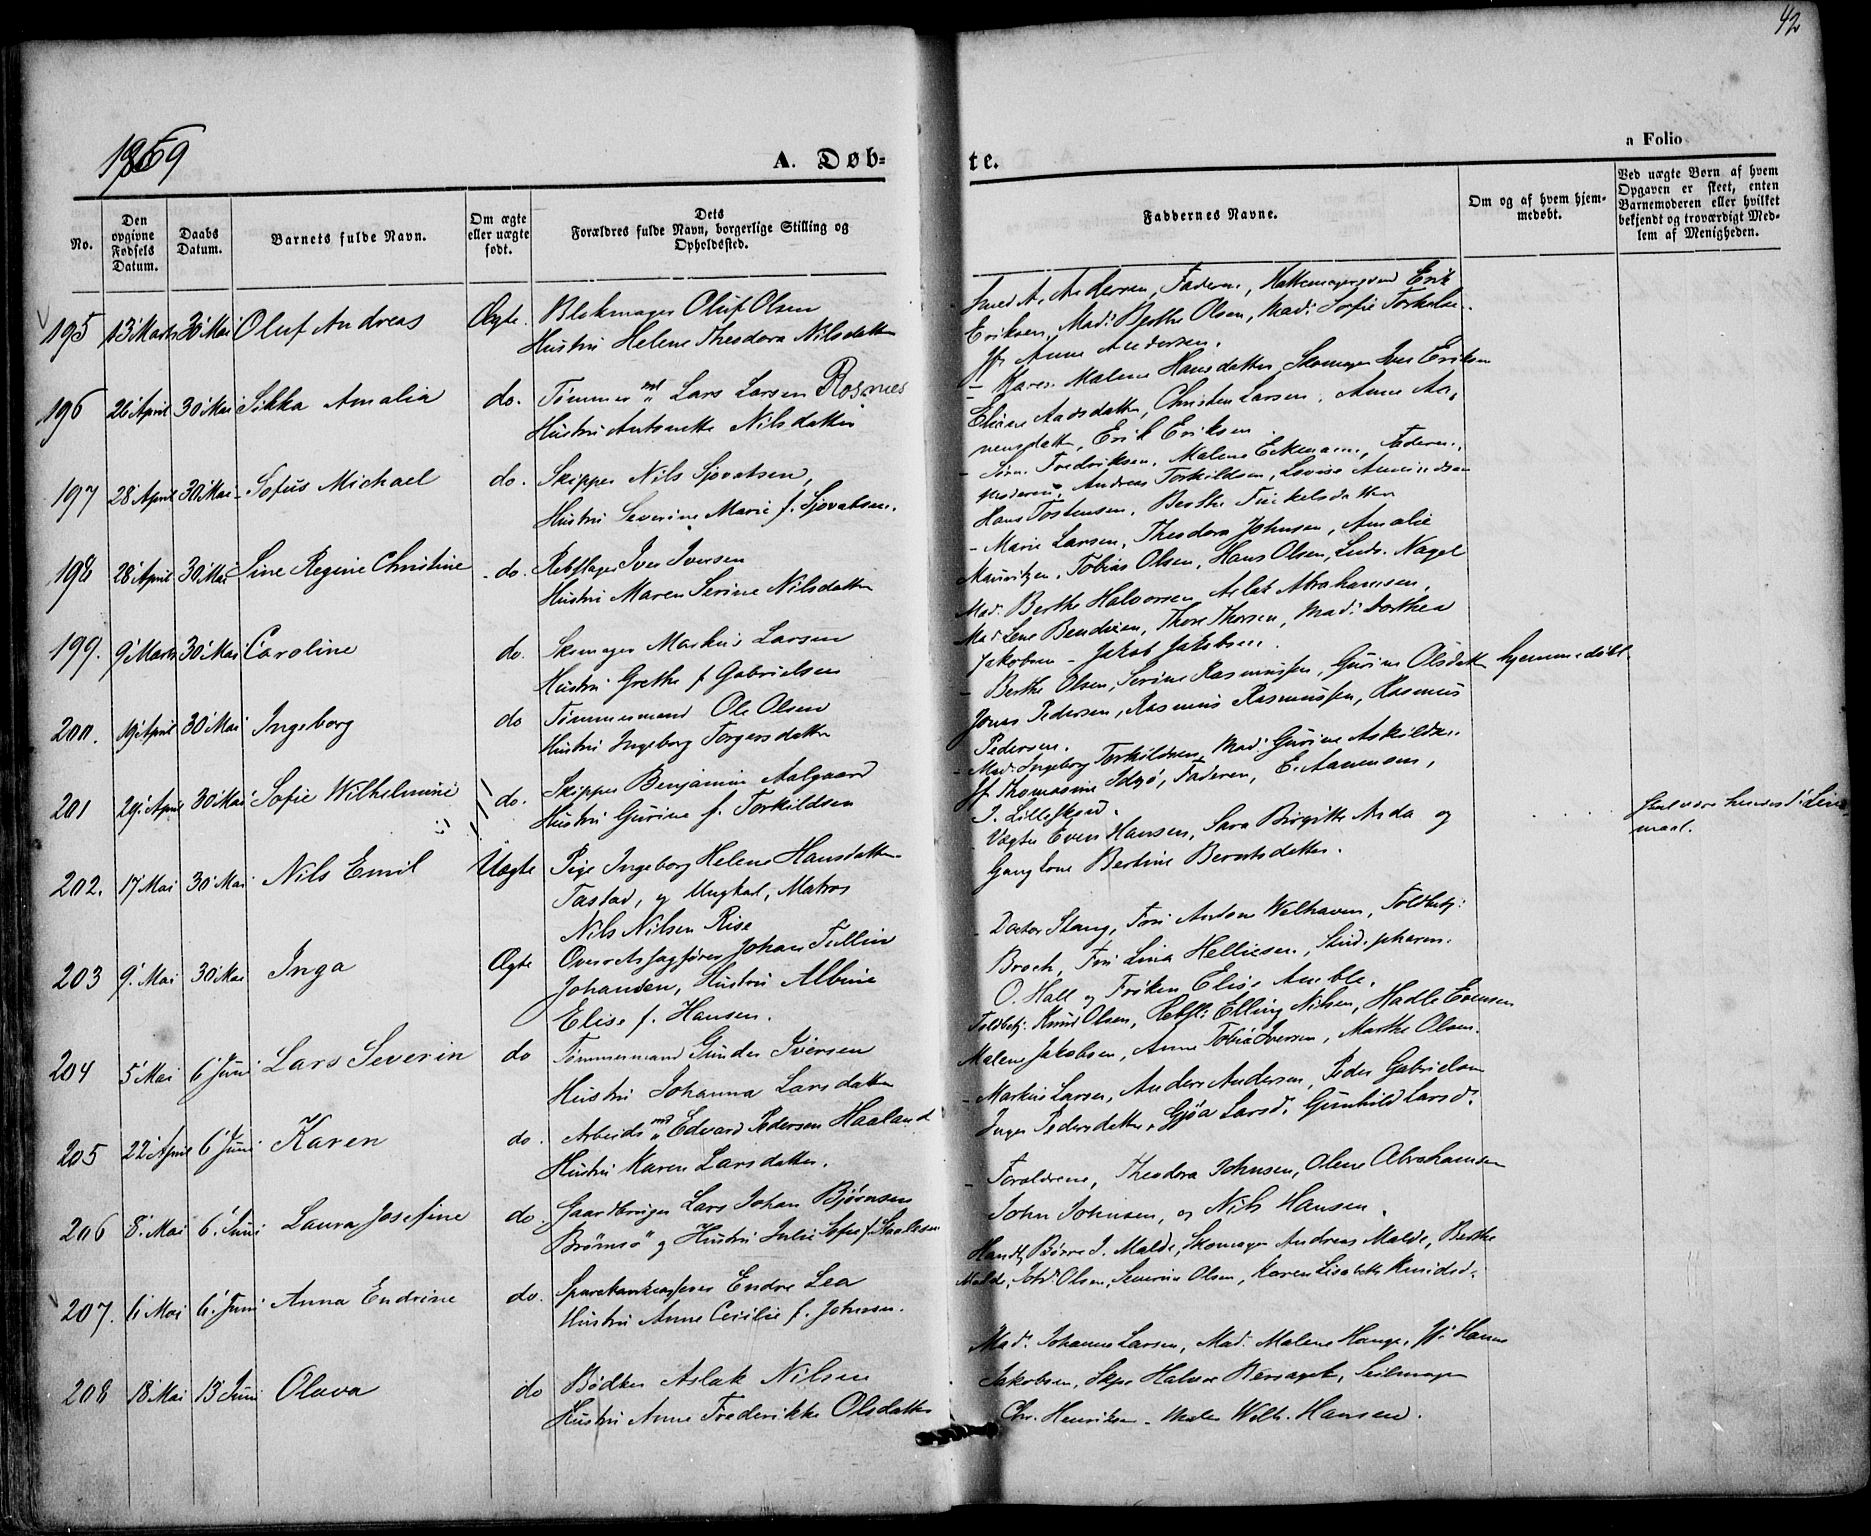 42
1869
A. Døb-
te.
a Folio
No.
Den opgivne Fødsels Datum.
Daabs Datum.
Barnets fulde Navn.
Om ægte eller uægte født.
Dets Forældres fulde Navn, borgerlige Stilling og Opholdssted.
Faddernes Navne.
Om og af hvem hjem-medøbt.
Ved uægte Børn af hvem Opgaven er skeet, enten Barnemoderen eller hvilket bekjendt og troværdigt Med-lem af Menigheden.
195 13 Marts 30 Mai Oluf Andreas Ægte. Blokmager Oluf Olsen
Hustru Helene Theodora Nilsdatter
196 26 April 30 Mai Sikka Amalia do. Tømmermd. Lars Larsen Rosnes
Hustru Antonette Nilsdatter
197 28 April 30 Mai Sofus Michael do. Skipper Nils Sjovatsen,
Hustru Severine Marie f. Sjovatsen.
198 28 April 30 Mai Sine Regine Christine do. Rebslager Iver Iversen
Hustru Maren Serine Nilsdatter
199. 9 Marts 30 Mai Caroline do. Skomager Markus Larsen
Hustru Grethe f Gabrielsen
200. 19 April 30 Mai Ingeborg do Tømmermand Ole Olsen
Hustru Ingeborg Torgersdatter
201 29 April 30 Mai Sofie Wilhelmine do. Skipper Benjamin Aalgaard
Hustru Gurine f. Torkildsen
202. 17 Mai 30 Mai Nils Emil Uægte Pige Ingeborg Helene Hansdatter
Tastad, og Ungkarl, Matros
Nils Nilsen Rise
203 9. Mai 30 Mai Inga Ægte Overretssagfører Johan Tullin
Johansen, Hustru Albine
Elise f. Hansen.
204 5 Mai 6 Juni Lars Severin do Tømmermand Gunder Iversen
Hustru Johanna Larsdatter
205 22 April 6 Juni Karen do. Arbeidsmd. Edvard Pedersen Haaland
Hustru Karen Larsdatter.
206 8. Mai 6. Juni Laura Josefine do. Gaardbruger Lars Johan Bjørnsen
Bromsø og Hustru Julie Sofie f. Staalesen
207. 6 Mai 6. Juni Anna Endrine do. Sparebankkasserer Endre Lea
Hustru Anne Cecilie f. Johnsen.
208 18 Mai 13 Juni Olava do Bødker Aslak Nilsen
Hustru Anne Frederikke Olsdatter
Smed A. Andersen, Faderen, Hattemagersvend Erik
Eriksen, Mad. Berthe Olsen, Mad. Sofie Torkelsen.
Jfr Anne Andersen.
- Karen Malene Hansdatter, Skomager Iver Eriksen
Eliane Aadsdatter, Christen Larsen, Anne Aa-
nensdatter, Erik Eriksen
- Sørn. Fredriksen, Malene Eckmann, Faderen,
Moderen, Andreas Torkildsen, Lovise Amundsen
Hans Tostensen, Berthe Finkelsdatter
- Marie Larsen, Theodora Johnsen, Amalie
Mauritzen, Tobias Olsen, Hans Olsen, Ludv. Nagel
Mad. Berthe Halvorsen, Aslak Abrahamsen,
Mad. Lene Bendixen, Thore Thorsen, Mad. Dorthea
Jakobsen - Jakob Jakobsen.
- Berthe Olsen, Serine Rasmussen, Gurine Olsdatter hjemmedøbt.
Jonas Pedersen, Rasmus Rasmussen, Rasmus
Pedersen.
- Mad. Ingeborg Torkildsen, Mad. Gurine Askildsen
Jf. Thomasine Idsø, Faderen, E. Aanensen,
I. Lilleskjød.
Vægter Even Hansen, Sara Birgitte Arda og
Gangkone Bertine Berntsdatter.
maal.
- Doctor Stang, Fru Andrea Welhaven, Toldbetj:
Broch, Fru Lina Helliesen, Stud. pharm.
O. Hall og Frøken Elise Amble.
Toldbetj. Knud Olsen, Rebsl. Elling Nilsen, Hadle Evensen
Malene Jakobsen, Anne Tobia Iversen, Marthe Olsen.
- Markus Larsen, Anders Andersen, Peder Gabrielsen
Inger Pedersdatter, Gjøa Larsd., Gunhild Larsd.
- Forældrene, Theodora Johnsen, Olene Abrahamsen
John Johnsen, og Nils Hansen.
Handl. Børre J. Malde, Skomager Andreas Malde, Berthe
Malde, Olsen, Severine Olsen, Karen Lisabeth Knudsd.
Mad. Johanne Larsen, Mad. Malene Hauge, Jf. Hanne
Jakobsen, Skpr Halvor Bersaget, Seilmager
Chr. Henriksen - Maler Wilh. Hansen.